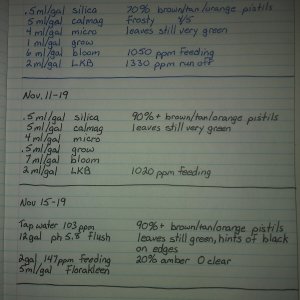 .5ml/gal silica 70% brown/tan/orange pistils
5ml/gal calmag frosty 4/5
4ml/gal micro leaves still very green
1ml/gal grow
6ml/gal bloom 1050 ppm feeding
2ml/gal LKB 1330 ppm run off
Nov. 11-19
.5ml/gal silica 90%+ brown/tan/orange pistils
5ml/gal calmag leaves still very green
4ml/gal micro
.5ml/gal grow
7ml/gal bloom
2ml/gal LKB 1020 ppm feeding
Nov 15-19
Tap water 103 ppm 90%+ brown/tan/orange pistils
12gal ph 5.8 flush leaves still green, hints of black
on edges
2gal 147ppm feeding 20% amber 0 clear
5ml/gal Florakleen